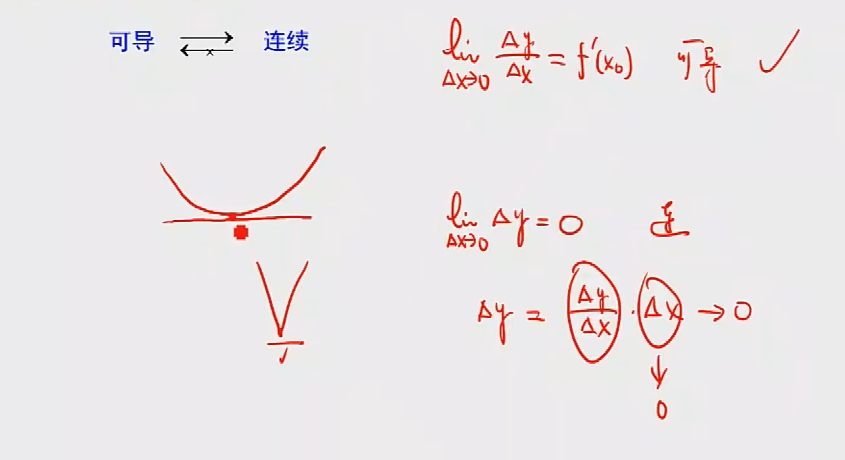 可导 ⇄ 连续
lim Δx→0 Δy/Δx = f'(x₀) 可导 ✓
lim Δx→0 Δy = 0
Δy = Δy/Δx · Δx → 0
↓
0